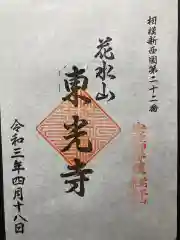 相模新西国第二十二番
花水山
東光寺
令和三年四月十八日